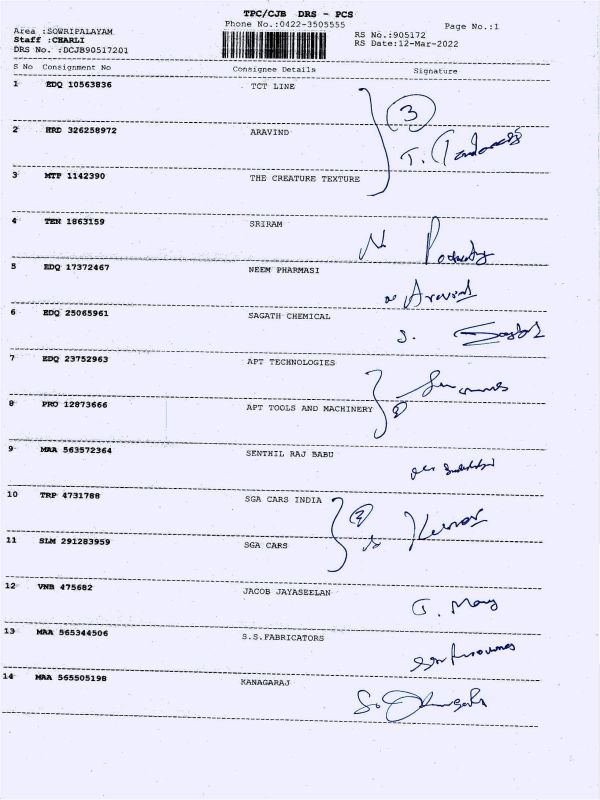 TPC/CJB DRS - PCS
Phone No.:0422-3505555
Page No.:1
Area :SOWRIPALAYAM
Staff :CHARLI
DRS No. :DCJB90517201
RS No.:905172
RS Date:12-Mar-2022
S No Consignment No Consignee Details Signature
1 EDQ 10563836 TCT LINE
3
2 HRD 326258972 ARAVIND
3 MTP 1142390 THE CREATURE TEXTURE
4 TEN 1863159 SRIRAM
5 EDQ 17372467 NEEM PHARMASI
Aravind
6 EDQ 25065961 SAGATH CHEMICAL
7 EDQ 23752963 APT TECHNOLOGIES
8 PRO 12873666 APT TOOLS AND MACHINERY
2
9 MAA 563572364 SENTHIL RAJ BABU
10 TRP 4731788 SGA CARS INDIA
2
Kumar
11 SLM 291283959 SGA CARS
12 VNB 475682 JACOB JAYASEELAN
J. Mary
13 MAA 565344506 S.S.FABRICATORS
14 MAA 565505198 KANAGARAJ